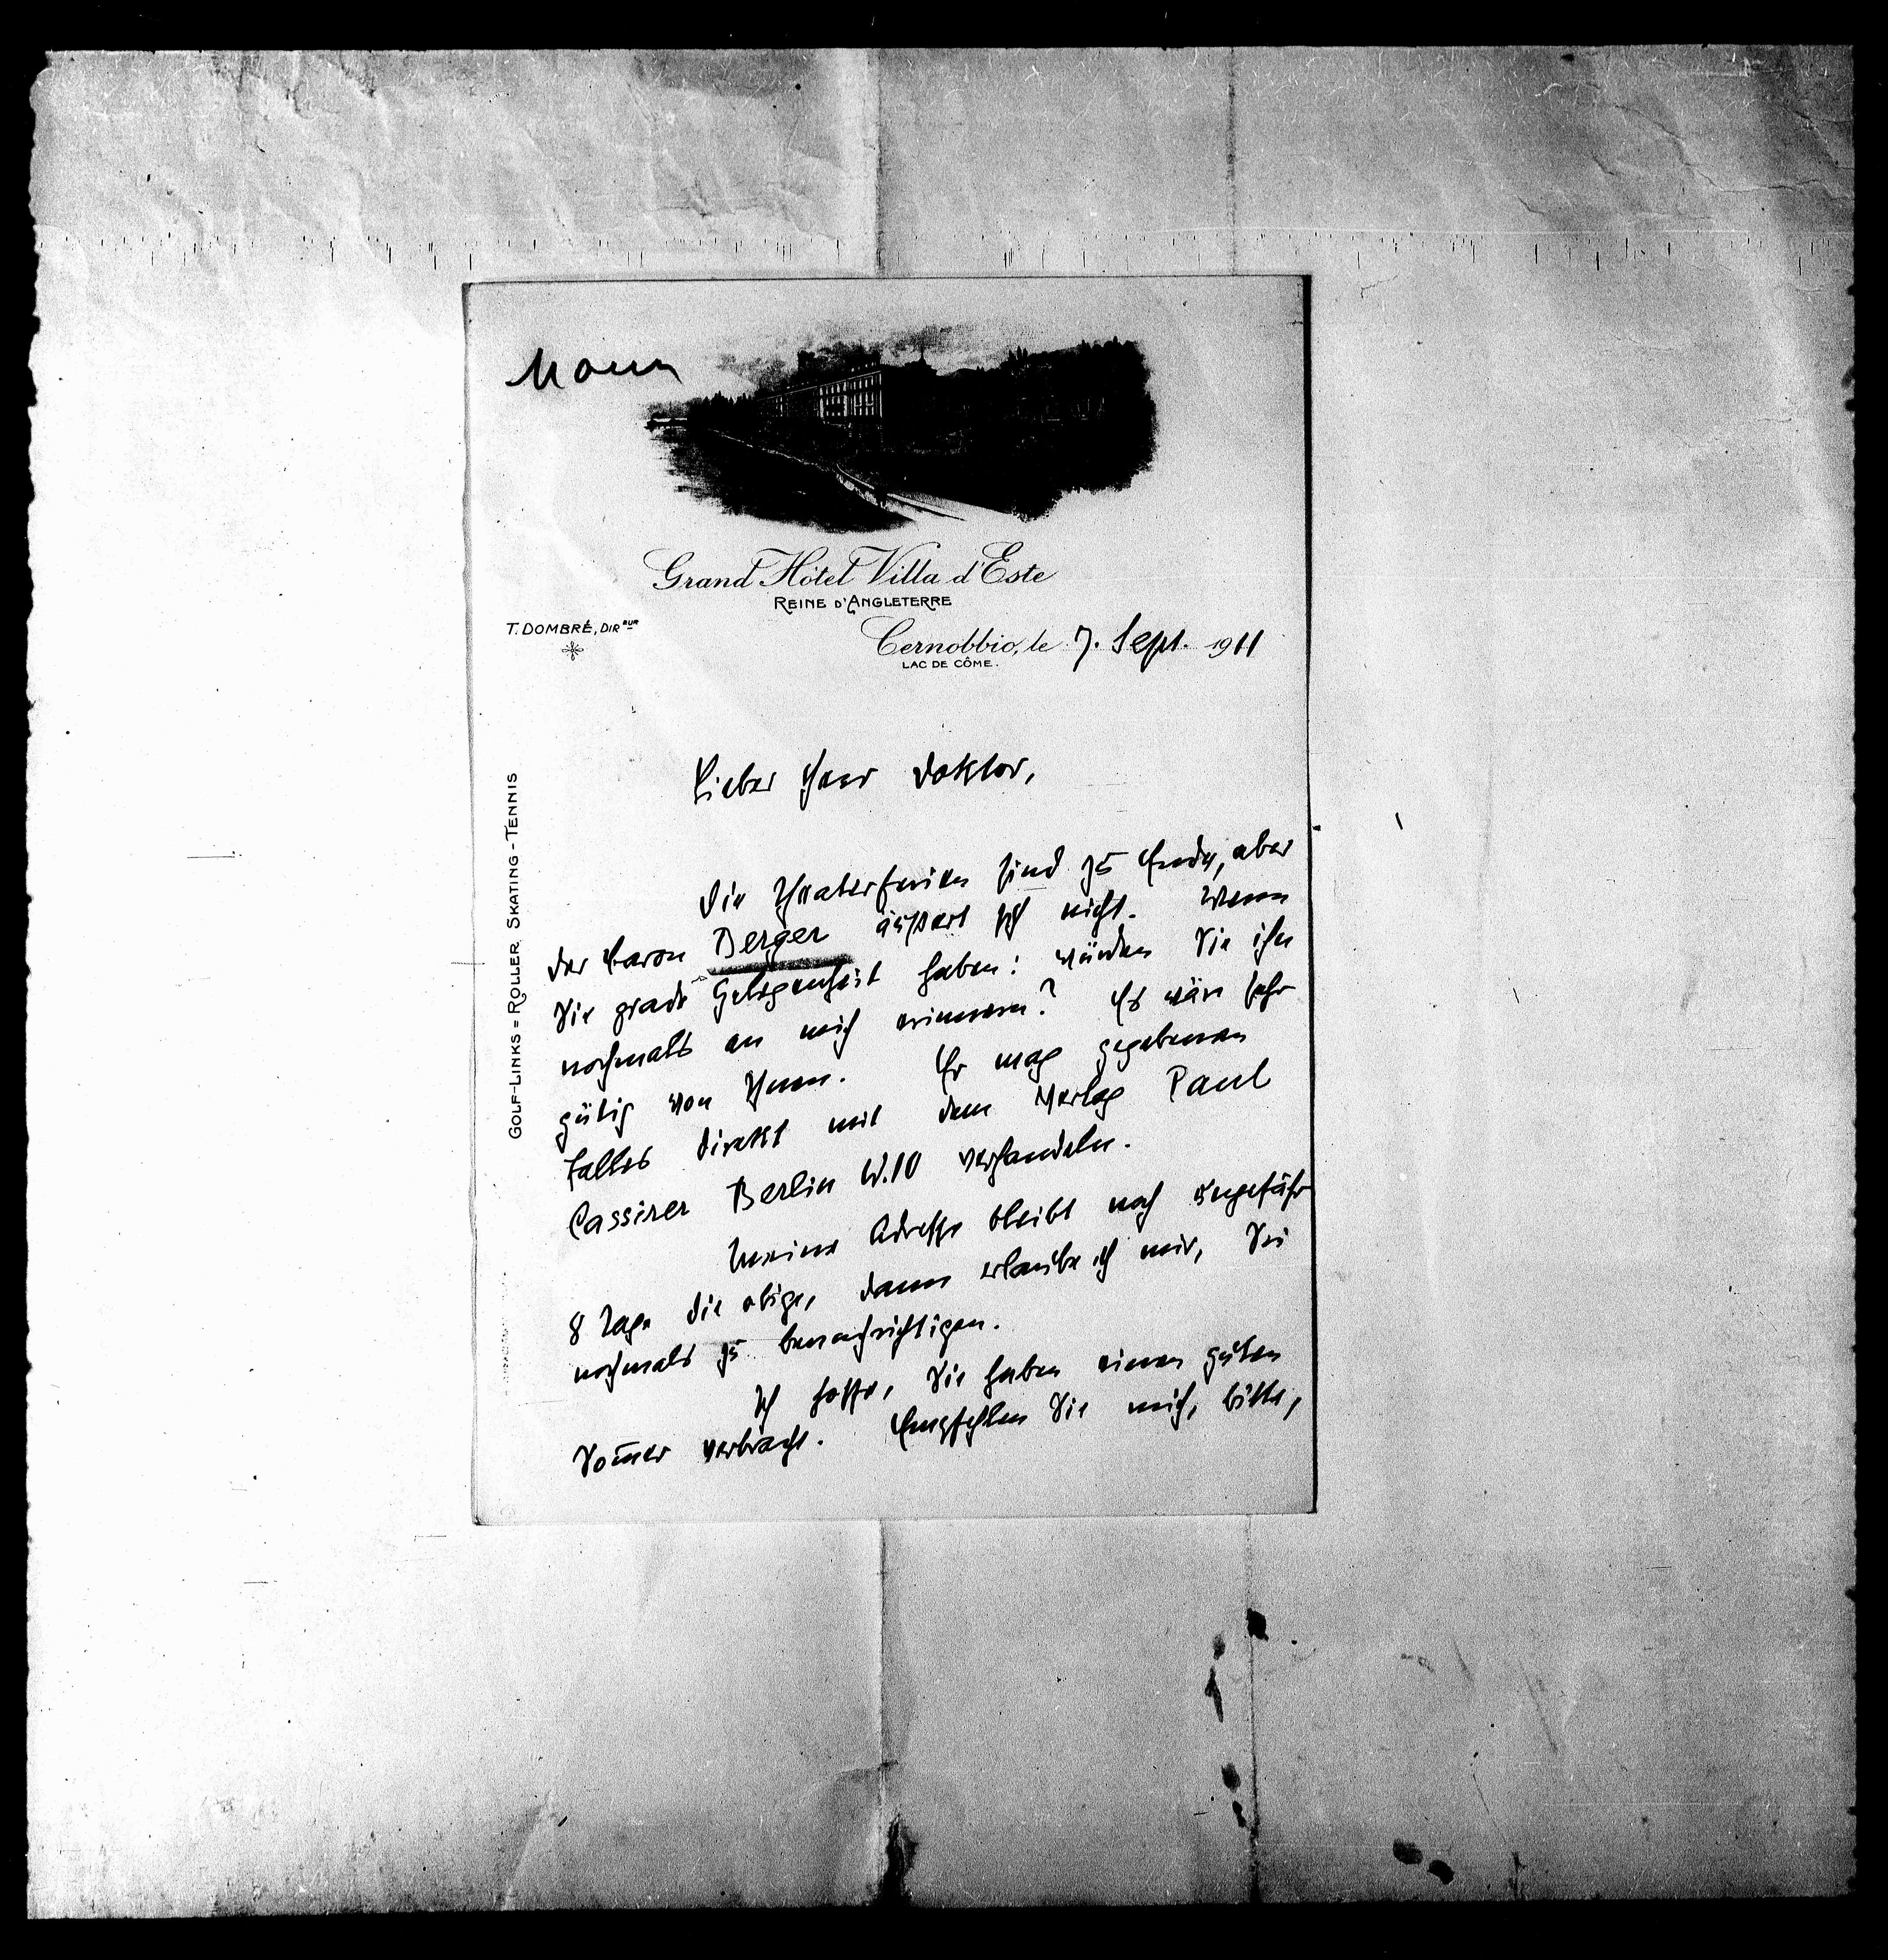 Mann
Grand Hôtel Villa d'Este
REINE D'ANGLETERRE
T. DOMBRÉ, DIR EUR
Cernobbio, le 7. Sept. 1911
LAC DE CÔME.
GOLF-LINKS = ROLLER SKATING - TENNIS
Lieber Herr Doktor,
die Theaterferien sind zu Ende, aber
der Baron Berger äußert sich nicht. Wenn
Sie grade Gelegenheit haben: würden Sie ihn
nochmals an mich erinnern? Es wäre sehr
gütig von Ihnen. Er mag gegebenen
Falles direkt mit dem Verlag Paul
Cassirer Berlin W.10 verhandeln.
Meine Adresse bleibt noch ungefähr
8 Tage die obige, dann erlaube ich mir, Sie
nochmals zu benachrichtigen.
Ich hoffe, Sie haben einen guten
Som̅er verbracht. Empfehlen Sie mich, bitte,